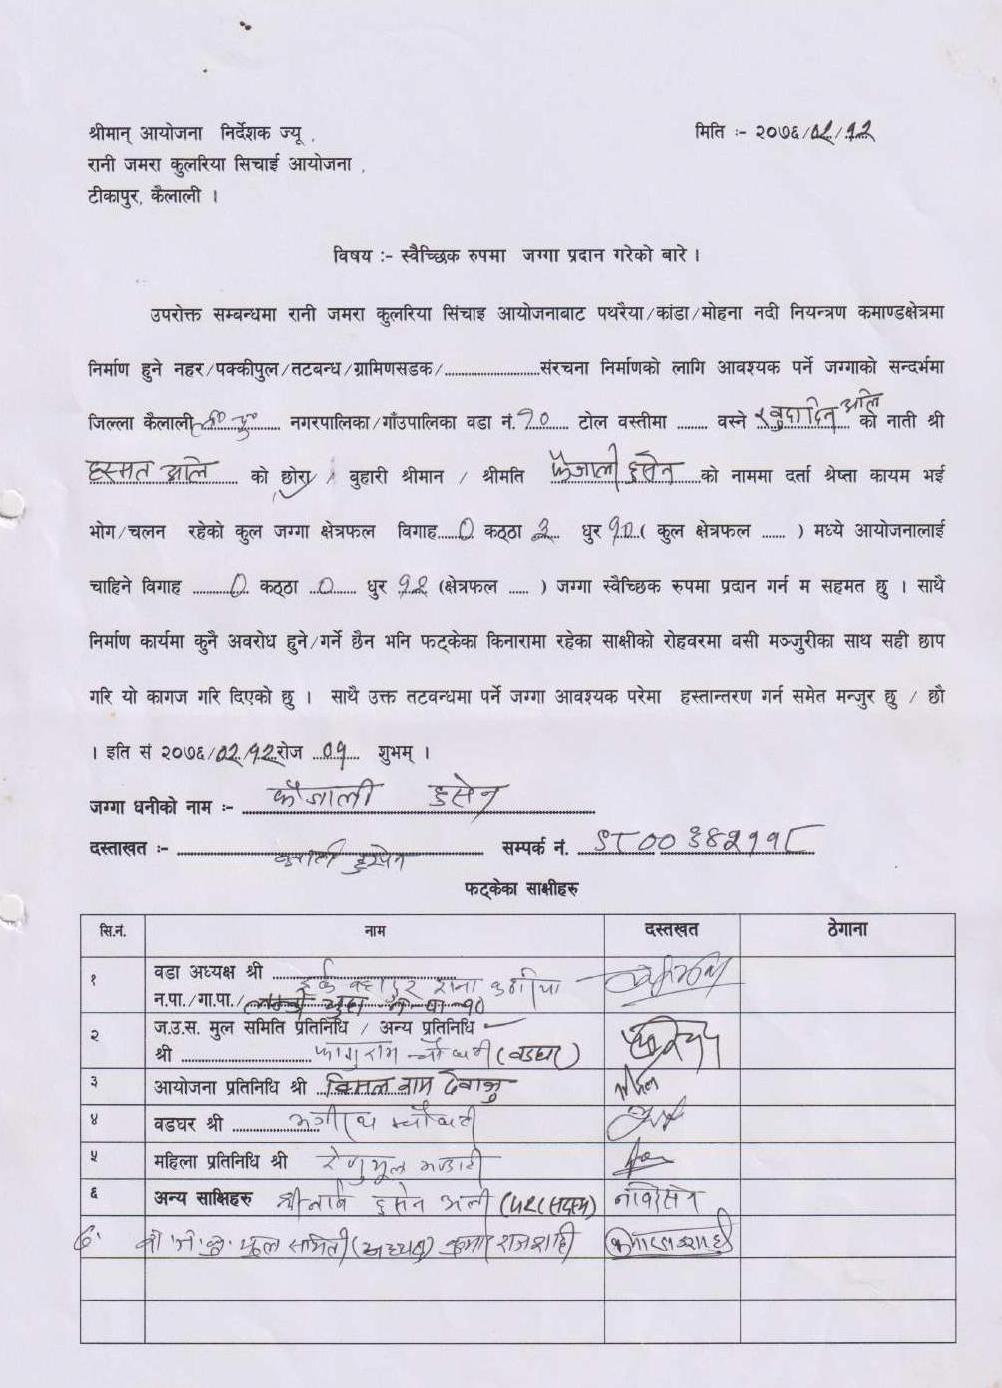 श्रीमान् आयोजना निर्देशक ज्यू ,
मिति :- २०७६/०२/१२
रानी जमरा कुलरिया सिचाई आयोजना ,
टीकापुर, कैलाली ।
विषय :- स्वैच्छिक रुपमा जग्गा प्रदान गरेको बारे ।
उपरोक्त सम्बन्धमा रानी जमरा कुलरिया सिंचाइ आयोजनाबाट पथरैया/कांडा/मोहना नदी नियन्त्रण कमाण्डक्षेत्रमा
निर्माण हुने नहर/पक्कीपुल/तटबन्ध/ग्रामिणसडक/...........................संरचना निर्माणको लागि आवश्यक पर्ने जग्गाको सन्दर्भमा
जिल्ला कैलाली नगरपालिका/गाँउपालिका वडा नं. १० टोल वस्तीमा ........ वस्ने खुदादिन अलि को नाती श्री
हस्मत अलि को छोरा / बुहारी श्रीमान / श्रीमति फैजाली हुसेन को नाममा दर्ता श्रेष्ता कायम भई
भोग/चलन रहेको कुल जग्गा क्षेत्रफल विगाह 0 कठ्ठा २ धुर १० ( कुल क्षेत्रफल ...... ) मध्ये आयोजनालाई
चाहिने विगाह 0 कठ्ठा 0 धुर १२ (क्षेत्रफल ...... ) जग्गा स्वैच्छिक रुपमा प्रदान गर्न म सहमत छु । साथै
निर्माण कार्यमा कुनै अवरोध हुने/गर्ने छैन भनि फट्केका किनारामा रहेका साक्षीको रोहवरमा वसी मञ्जुरीका साथ सही छाप
गरि यो कागज गरि दिएको छु । साथै उक्त तटवन्धमा पर्ने जग्गा आवश्यक परेमा हस्तान्तरण गर्न समेत मन्जुर छु / छौ
। इति सं २०७६/०२/१२ रोज ०१ शुभम् ।
जग्गा धनीको नाम :- फैजाली हुसेन
दस्ताखत :- सम्पर्क नं.
फट्केका साक्षीहरु
सि.नं. नाम दस्तखत ठेगाना
१ वडा अध्यक्ष श्री
न.पा./गा.पा./
२ ज.उ.स. मुल समिति प्रतिनिधि / अन्य प्रतिनिधि
श्री फागुराम चौधरी (वडघर)
३ आयोजना प्रतिनिधि श्री
४ वडघर श्री चौधरी
५ महिला प्रतिनिधि श्री
६ अन्य साक्षिहरु हुसेन अली
मुल समिति (अध्यक्ष)